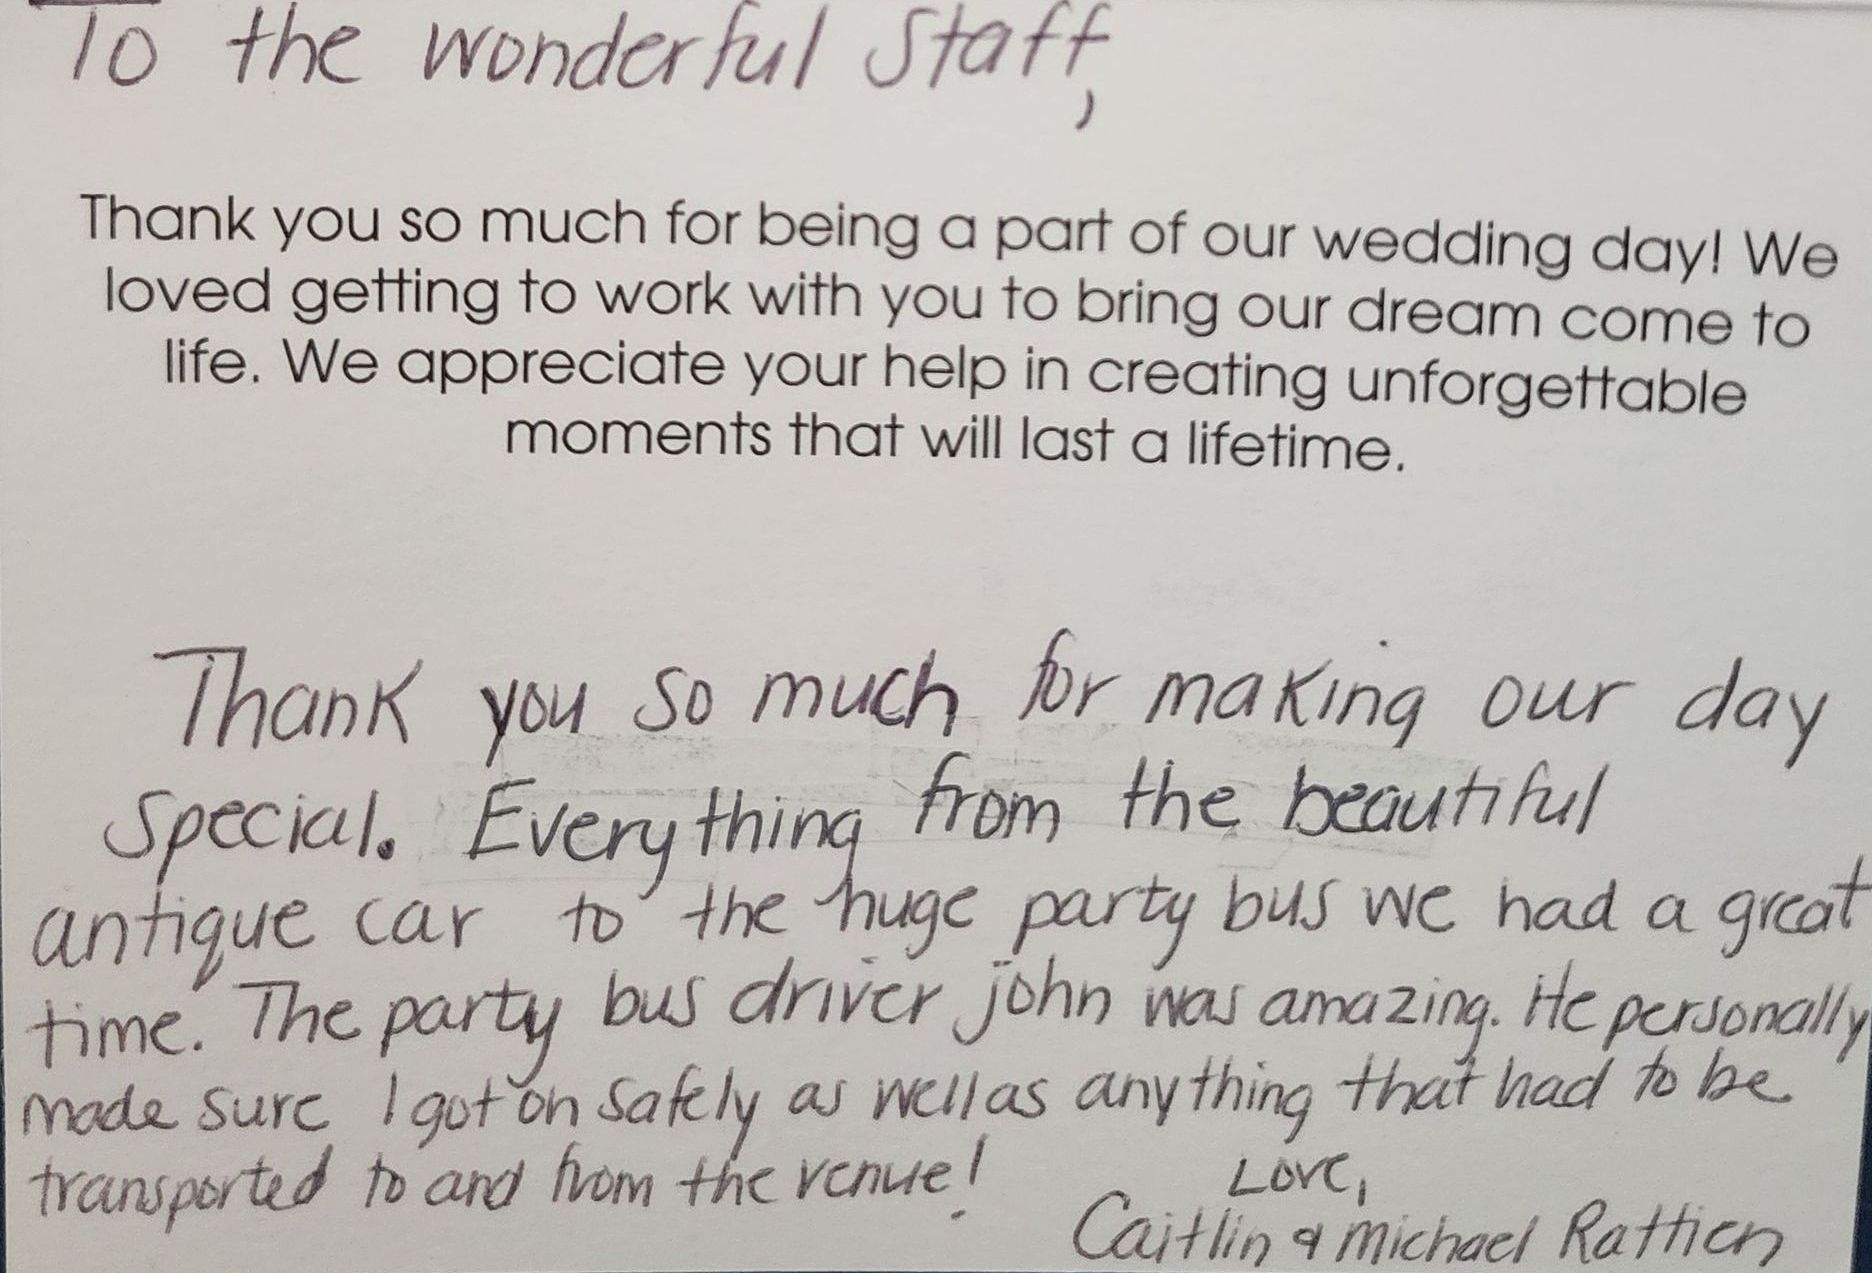 To the wonderful Staff,
Thank you so much for being a part of our wedding day! We
loved getting to work with you to bring our dream come to
life. We appreciate your help in creating unforgettable
moments that will last a lifetime.
Thank you so much for making our day
special. Everything from the beautiful
antique car to the huge party bus we had a great
time. The party bus driver john was amazing. He personally
made sure I got on safely as well as anything that had to be
transported to and from the venue!
Love,
Caitlin & michael Rattien